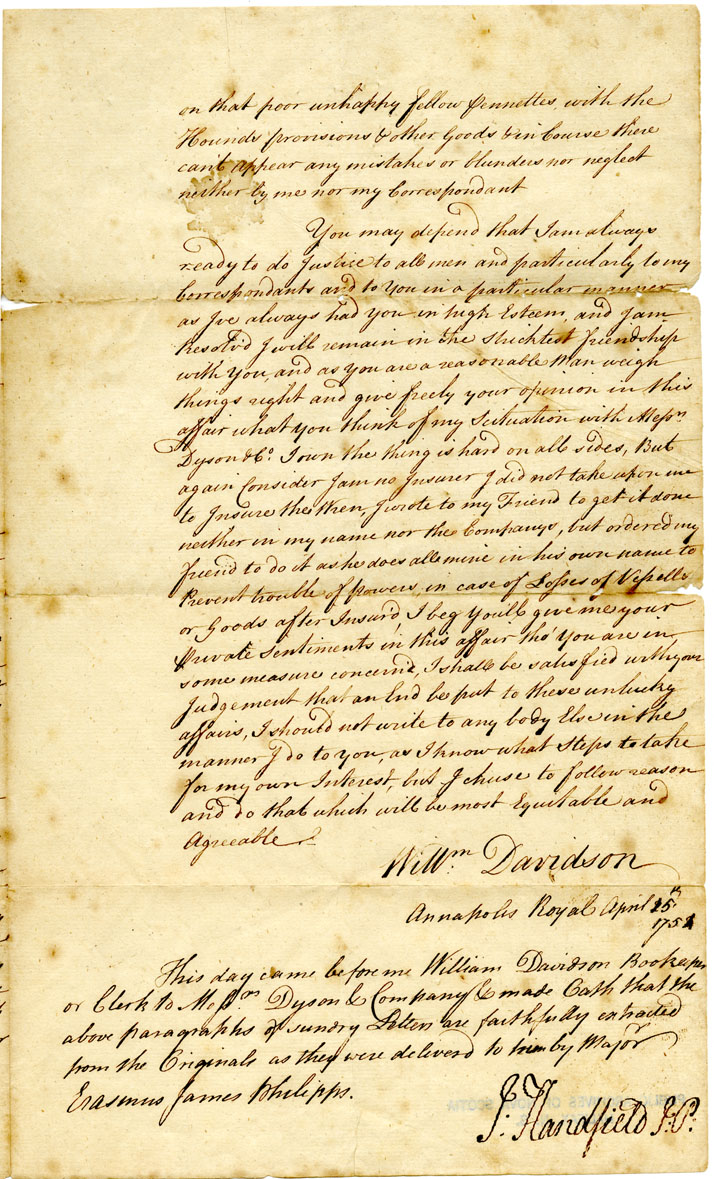 on that poor unhappy fellow Pennettes, with the
Hounds provisions & other Goods & in Course there
can't appear any mistakes or blunders nor neglect
neither by me nor my Correspondant
You may depend that I am always
ready to do Justice to all men and particularly to my
Correspondants and to You in a particular manner
as I've always had you in high Esteem, and I am
Resolv'd I will remain in the Strictest friendship
with You, and as you are a reasonable Man weigh
things right and give freely your opinion in this
affair what you think of my Scituation with Messrs.
Dyson & Co. I own the thing is hard on all sides, But
again Consider I am no Insurer I did not take upon me
to Insure the Wren, I wrote to my Friend to get it done
neither in my name nor the Companys, but ordered my
friend to do it as he does all mine in his own name to
Prevent trouble of powers in case of Losses of Vessells
or Goods after Insur'd, I beg You'll give me your
Private Sentiments in this affair tho' You are in
some measure concern'd, I shall be satisfied with your
Judgement that an End be put to these unlucky
affairs, I should not write to any body Else in the
manner I do to you, as I know what Steps to take
for my own Interest, but I chuse to follow reason
and do that which will be most Equitable and
Agreeable
Willm. Davidson
Annapolis Royal April 25th
175
This day came before me William Davidson Bookeeper
or Clerk to Messrs Dyson & Company & made Oath that the
above paragraphs of sundry Letters are faithfully extracted
from the Originals as they were deliverd to him by Major
Erasmus James Philipps.
J. Handfield J.P.
ARCHIVES OF NOVA SCOTIA